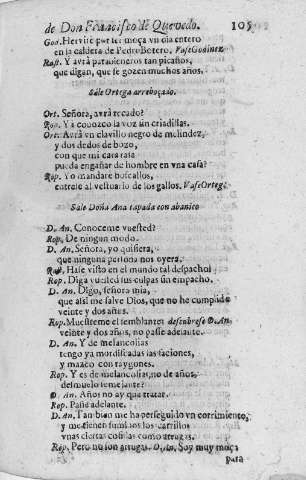 de Don Francisco de Quevedo. 105
God. Hervirè por ser moça vn dia entero
en la caldera de Pedro Botero. Vase Godinez
Rast. Y avrà parasseneros tan picaños,
que digan, que se gozen muchos años.
Sale Ortega arreboçado.
Ort. Señora, avrà recado?
Rop. Ya conozco la voz sin criadillas.
Ort. Avrà vn clavillo negro de melindez,
y dos dedos de bozo,
con que mi cara rasa
pueda engañar de hombre en vna casa?
Rop. Yo mandarè buscallos,
entrese al vestuario de los gallos. Vase Ortega
Sale Doña Ana tapada con abanico
D. An. Conoceme vuested?
Rop. De ningun modo.
D. An. Señora, yo quisiera,
que ninguna persona nos oyera.
Rop. Hase visto en el mundo tal despacho!
Diga vuested sus culpas sin empacho.
D. An. Digo, señora mia,
que assi me salve Dios, que no he cumplido
veinte y dos años.
Rop. Muestreme el semblante: descubrese D. An.
veinte y dos años, no passe adelante.
D. An. Y de melancolias
tengo ya mordiscadas las faciones,
y maaco con raygones.
Rop. Y es de melancolias, no de años,
desmuelo semejante?
D. An. Años no ay que tratar.
Rop. Passe adelante.
D. An. Tambien me ha perseguido vn corrimiento,
y me tienen sumidos los carrillos
vnas ciertas cosillas como arrugas.
Rop. Pero no son arrugas. D. An. Soy muy moça
para